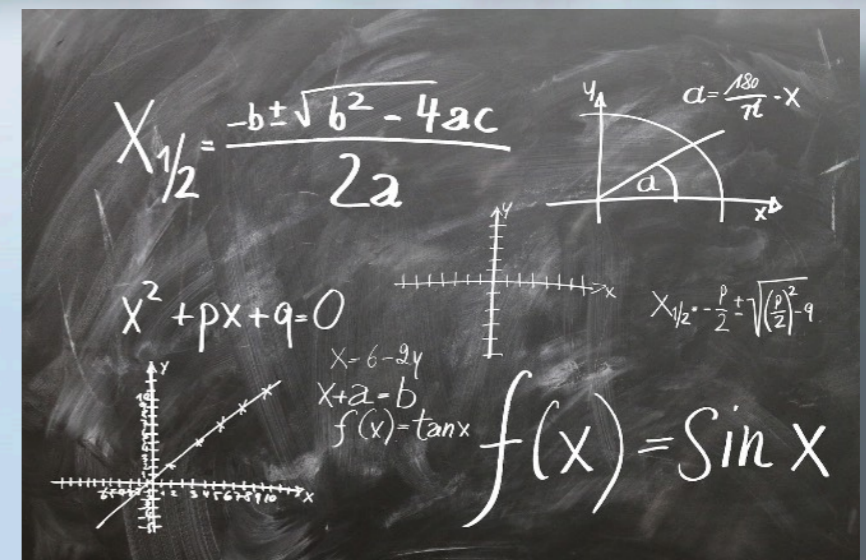 X₁/₂ = (-b ± √(b² - 4ac)) / 2a
y
a = 180/π - x
a
x
y
x
x² + px + q = 0
X₁/₂ = -p/2 ± √((p/2)² - q)
x = 6 - 2y
x + a = b
f(x) = tan x
f(x) = Sin x
y
x
1 2 3 4 5 6 7 8 9 10